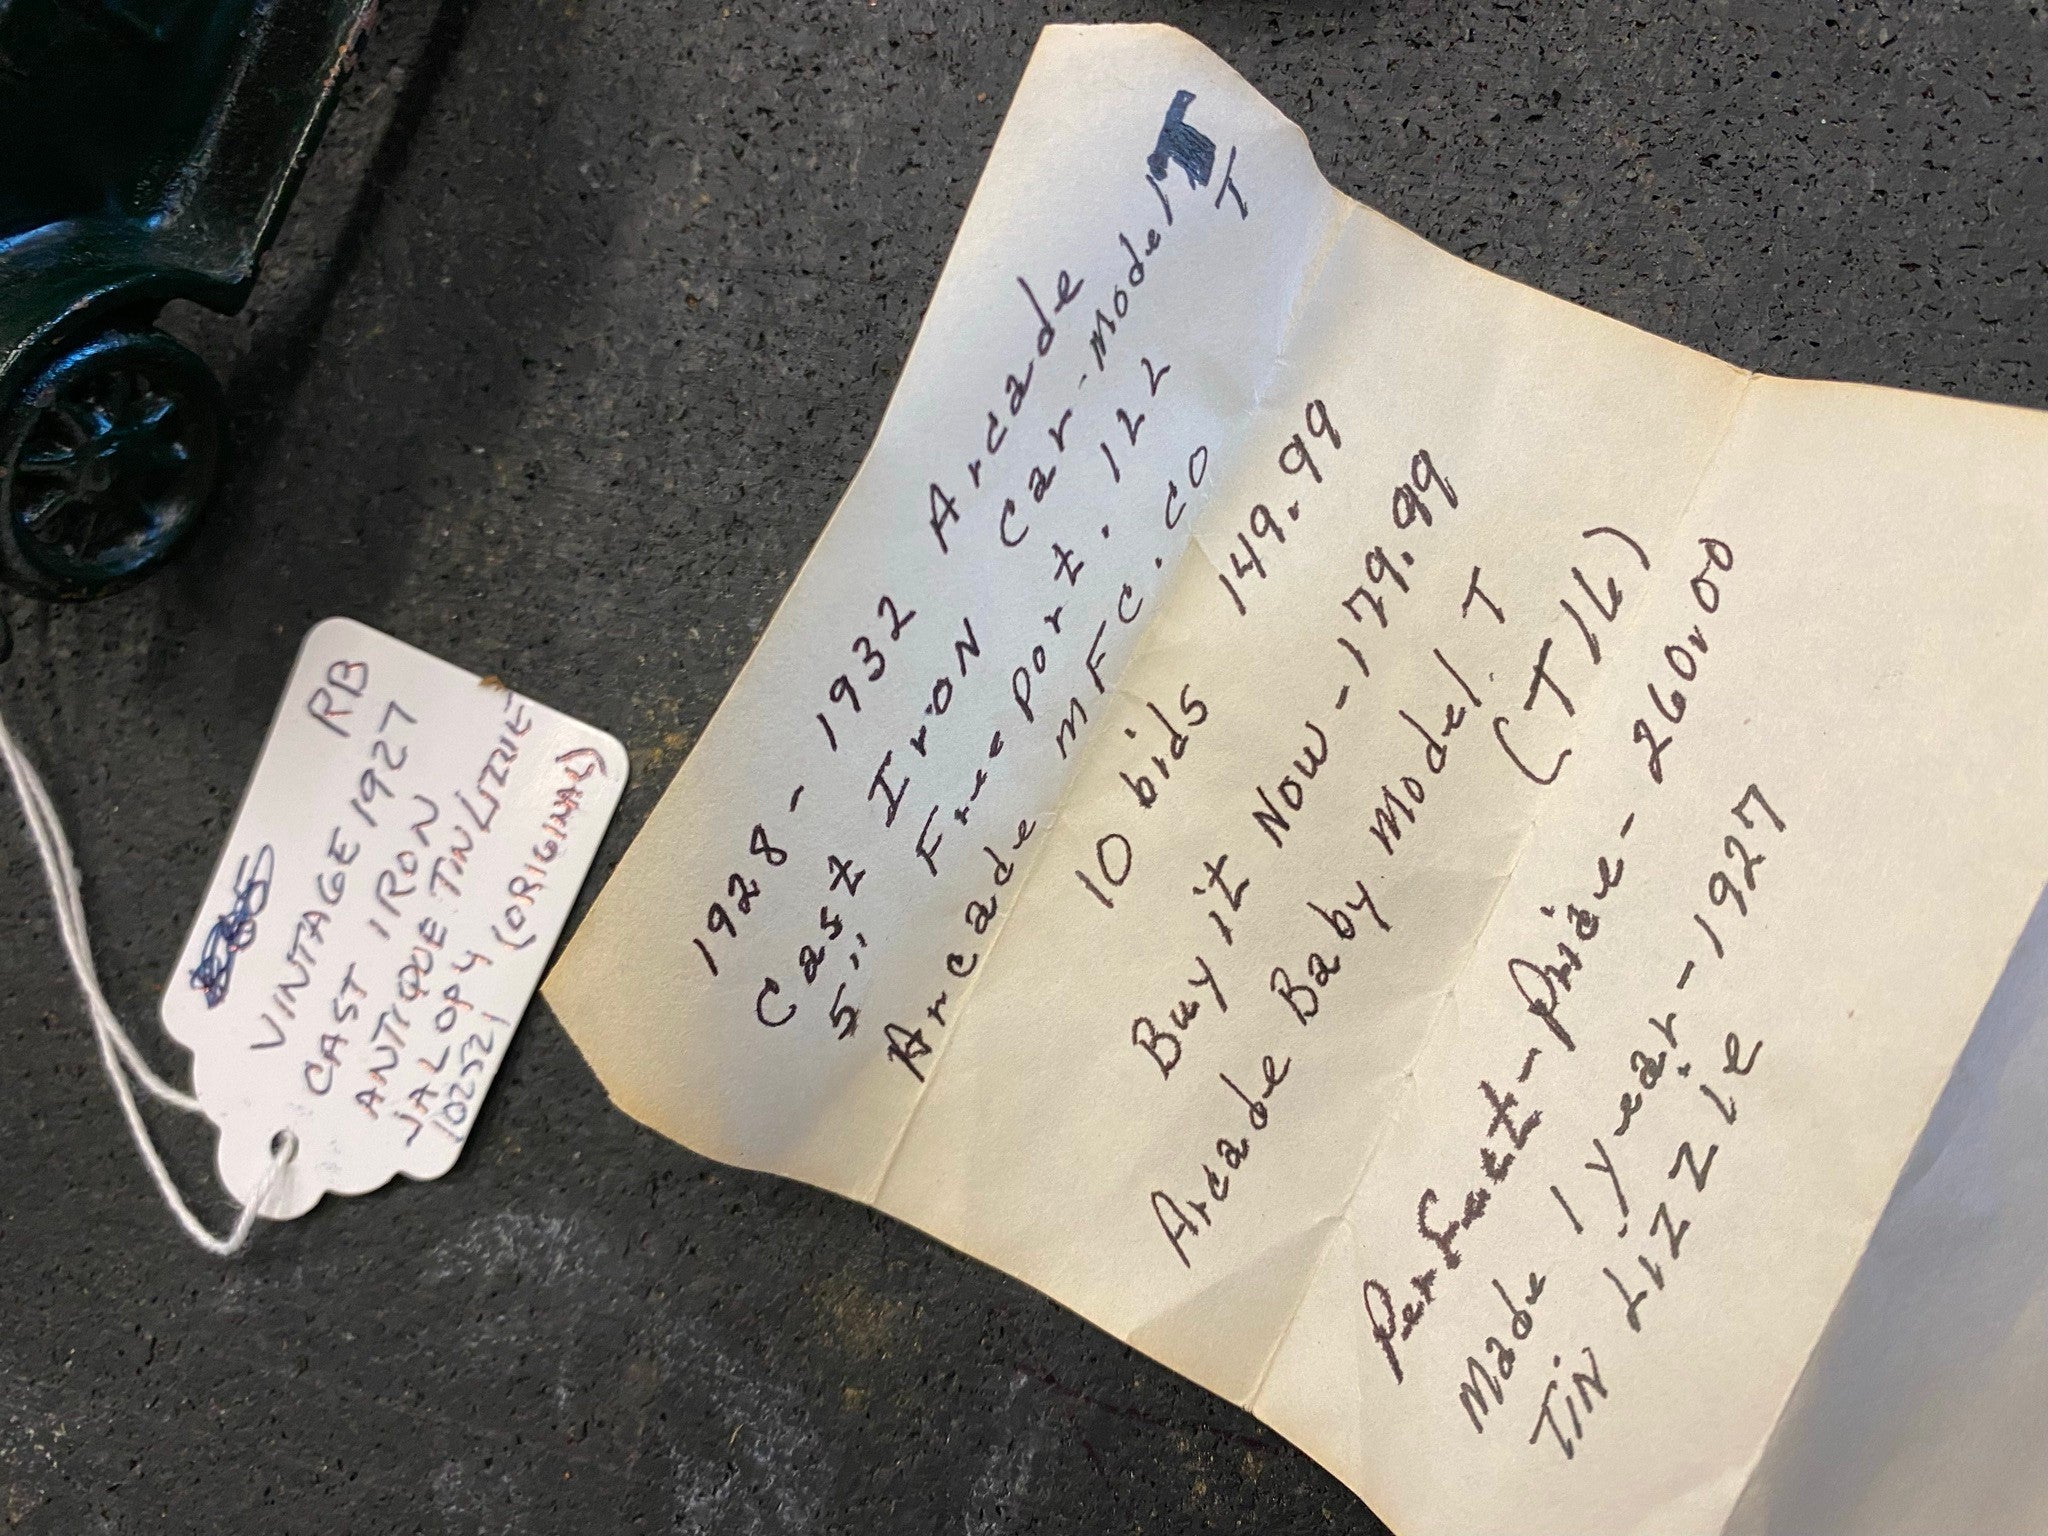 RB
VINTAGE 1927
CAST IRON
ANTIQUE TIN LIZZIE
JALOPY (ORIGINAL)
102521
1928 - 1932 Arcade
Cast Iron Car - Model T
T
5" Freeport. ILL
Arcade MFC. CO
10 bids 149.99
Buy it Now - 179.99
Arcade Baby Model T
(T16)
Perfect - Price - 260.00
Made 1 year - 1927
TIN LIZZIE